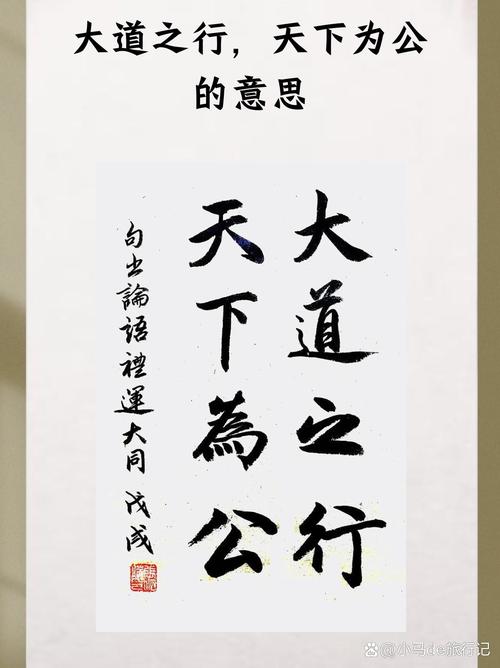 大道之行，天下为公
的意思
大道之行
天下為公
句出論語禮運大同 戊戌
@小马de旅行记